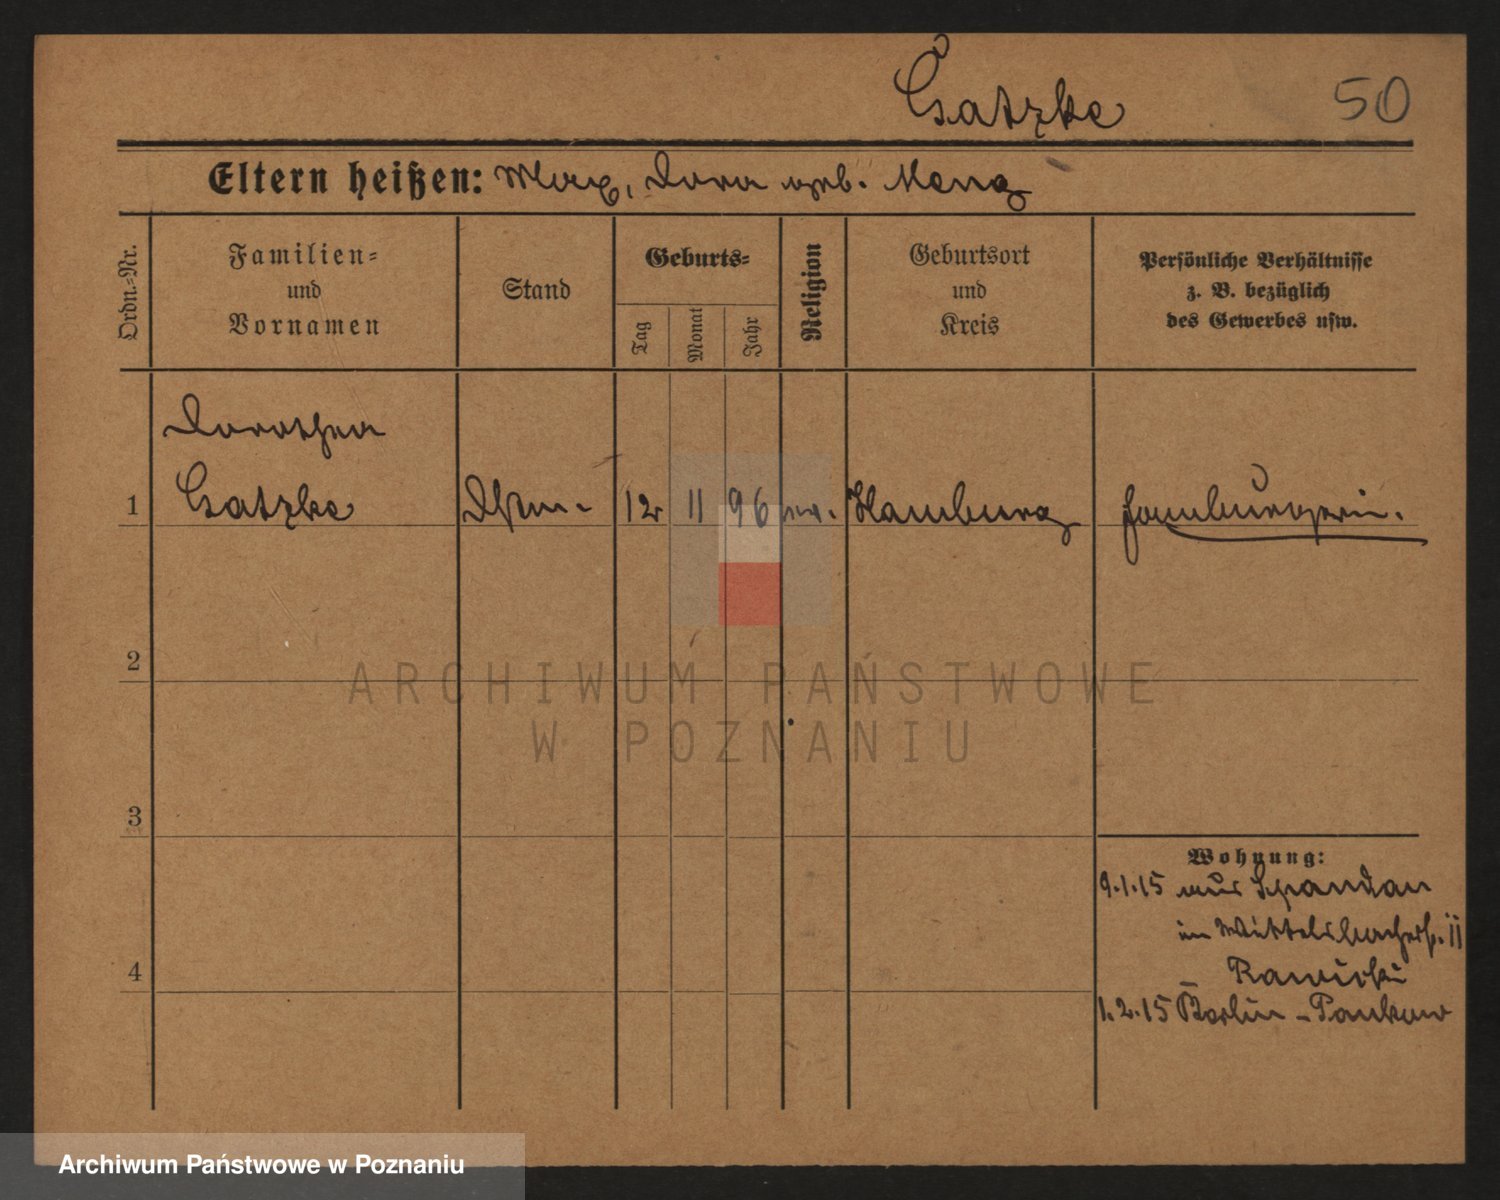 Gatzke
50
Eltern heißen: Max, Dora geb. Menz
Ordn.-Nr.
Familien-
und
Vornamen
Stand
Geburts-
Tag
Monat
Jahr
Religion
Geburtsort
und
Kreis
Persönliche Verhältnisse
z. B. bezüglich
des Gewerbes usw.
Dorothea
1 Gatzke 12 11 96 ev. Hamburg Hamburgerin.
2
ARCHIWUM PAŃSTWOWE
W POZNANIU
3
Wohnung:
9.1.15 aus Spandau
in Wittelsbacherstr. 11
4
Rawicki
1.2.15 Berlin - Pankow
Archiwum Państwowe w Poznaniu